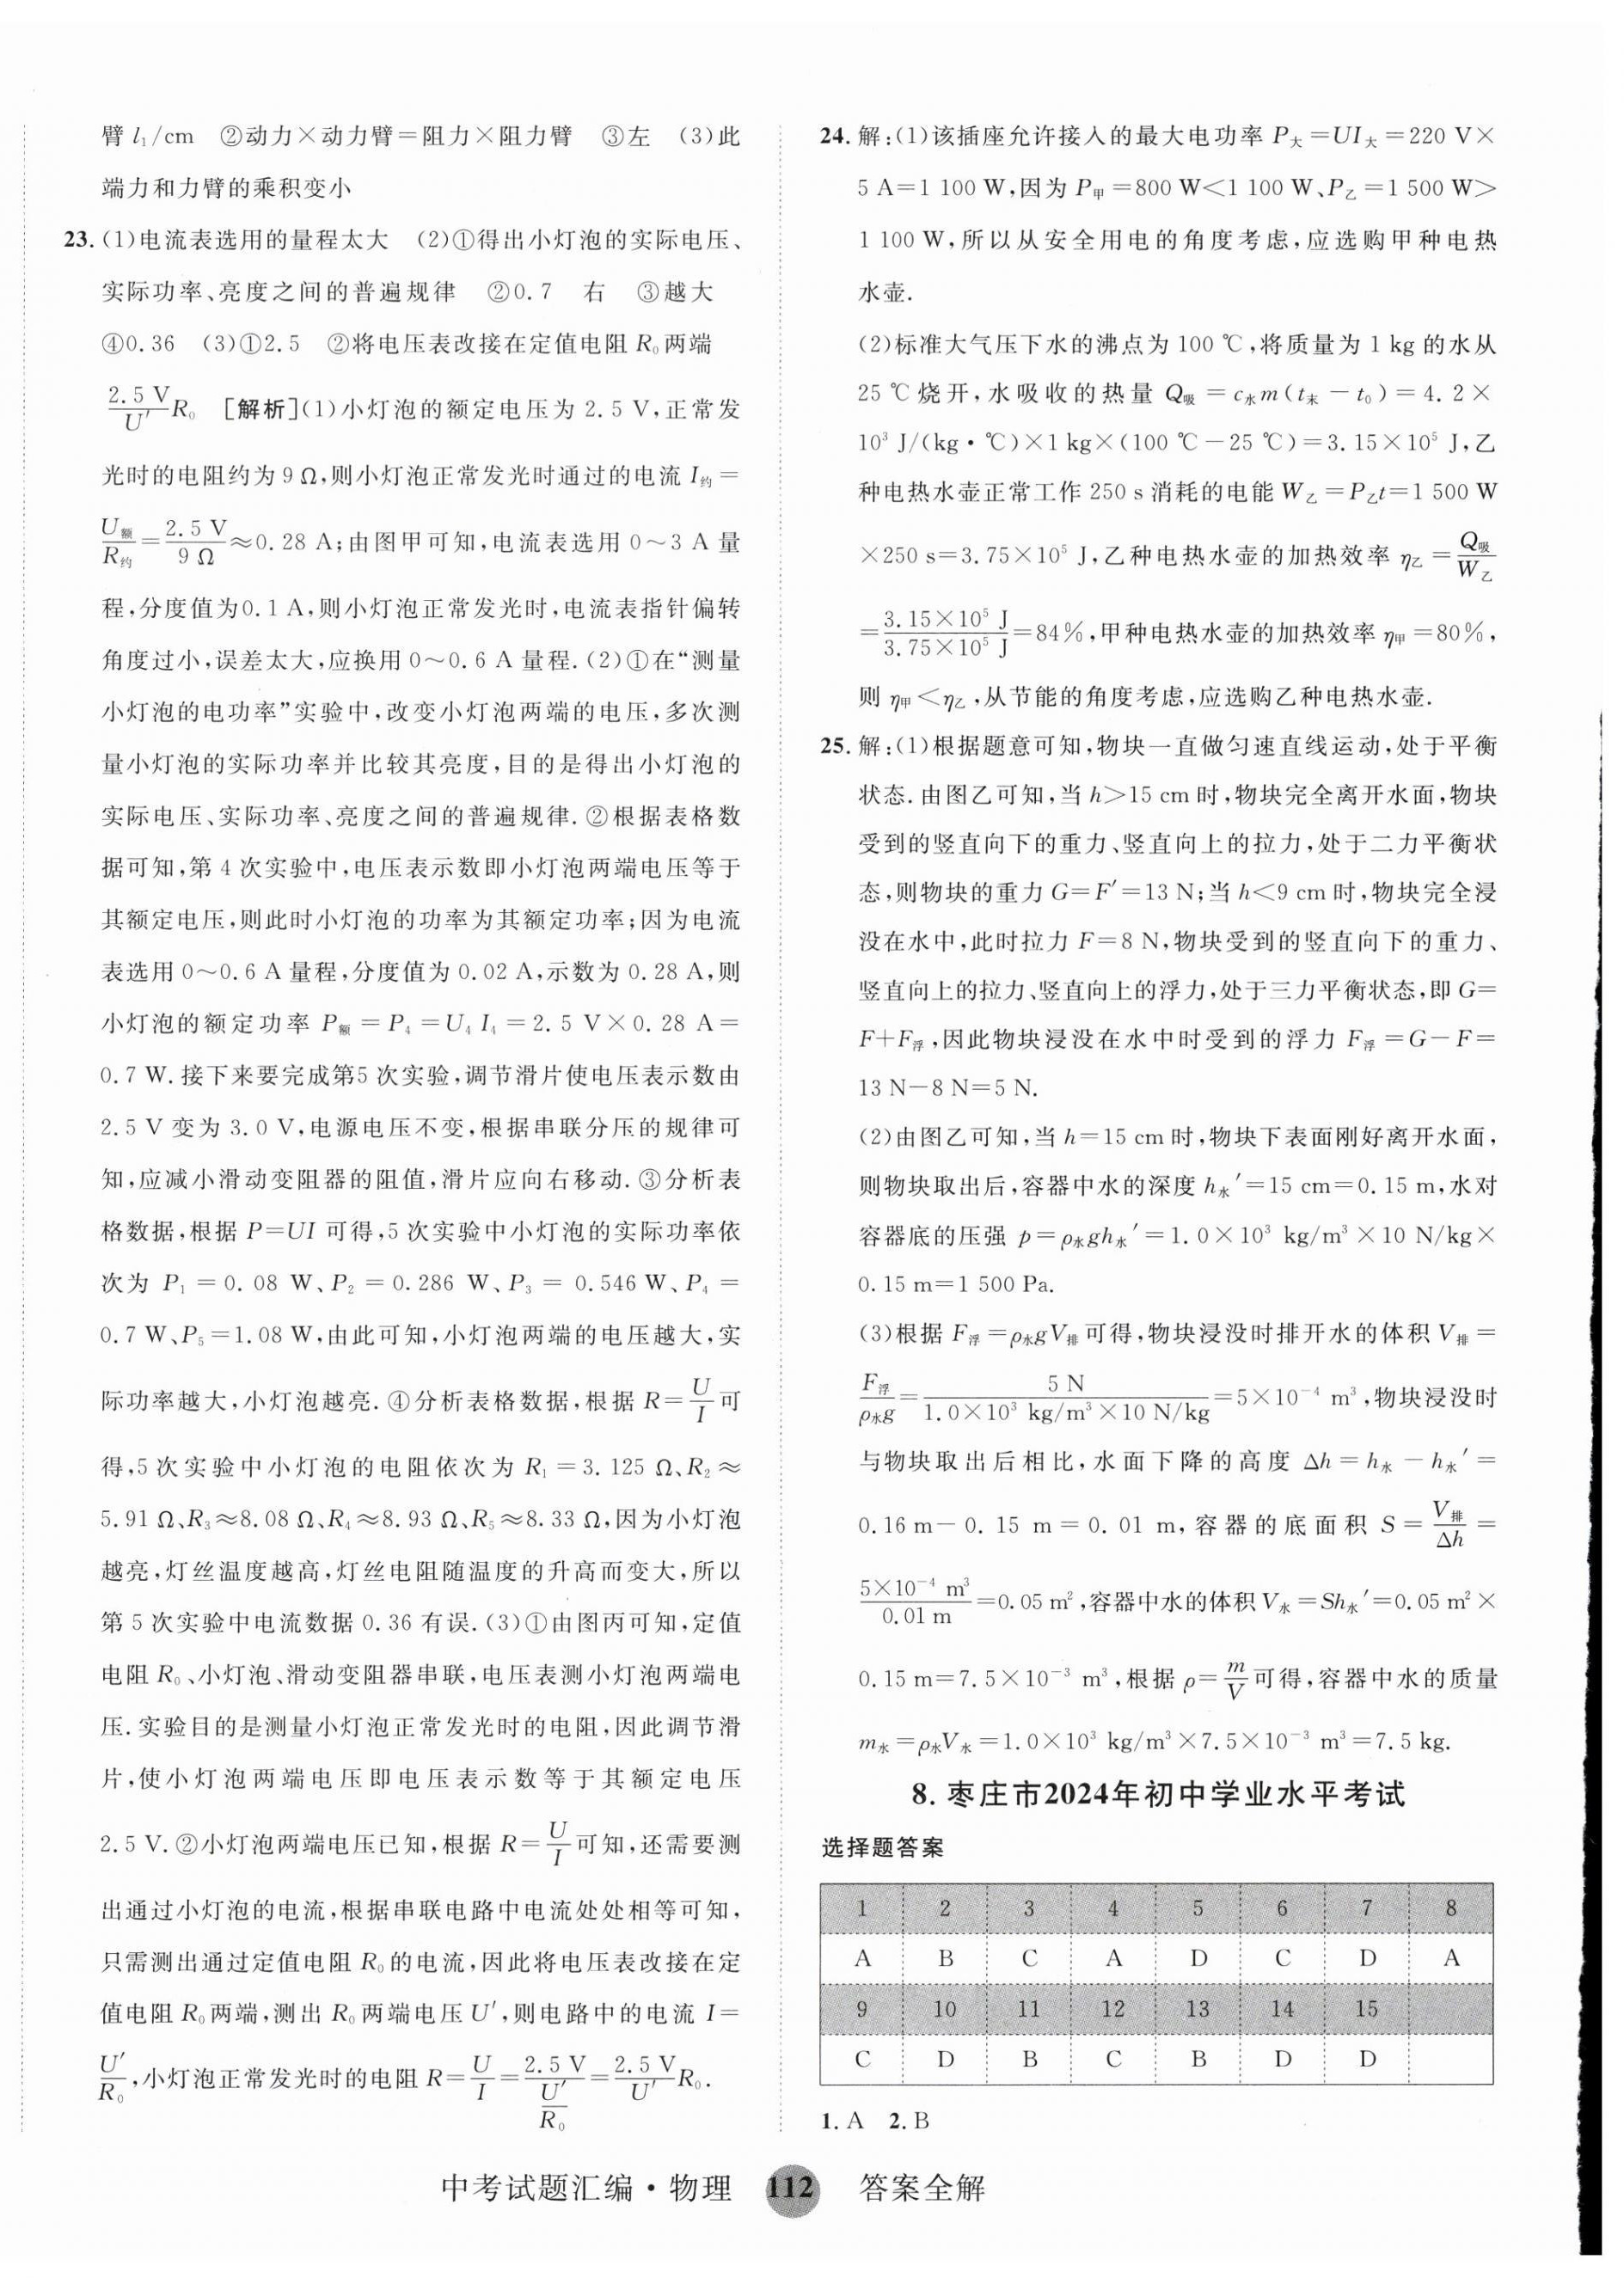 臂 l₁/cm ②动力×动力臂=阻力×阻力臂 ③左 (3)此
端力和力臂的乘积变小
23. (1)电流表选用的量程太大 (2)①得出小灯泡的实际电压、
实际功率、亮度之间的普遍规律 ②0.7 右 ③越大
④0.36 (3)①2.5 ②将电压表改接在定值电阻 R₀两端
2.5 V/U′ R₀ [解析](1)小灯泡的额定电压为 2.5 V,正常发
光时的电阻约为 9 Ω,则小灯泡正常发光时通过的电流 I约=
U额/R约=2.5 V/9 Ω≈0.28 A;由图甲可知,电流表选用 0～3 A 量
程,分度值为0.1 A,则小灯泡正常发光时,电流表指针偏转
角度过小,误差太大,应换用 0～0.6 A 量程.(2)①在“测量
小灯泡的电功率”实验中,改变小灯泡两端的电压,多次测
量小灯泡的实际功率并比较其亮度,目的是得出小灯泡的
实际电压、实际功率、亮度之间的普遍规律.②根据表格数
据可知,第 4 次实验中,电压表示数即小灯泡两端电压等于
其额定电压,则此时小灯泡的功率为其额定功率;因为电流
表选用 0～0.6 A 量程,分度值为 0.02 A,示数为 0.28 A,则
小灯泡的额定功率 P额=P₄=U₄I₄=2.5 V×0.28 A=
0.7 W.接下来要完成第5 次实验,调节滑片使电压表示数由
2.5 V 变为 3.0 V,电源电压不变,根据串联分压的规律可
知,应减小滑动变阻器的阻值,滑片应向右移动.③分析表
格数据,根据 P=UI 可得,5 次实验中小灯泡的实际功率依
次为 P₁=0.08 W、P₂=0.286 W、P₃=0.546 W、P₄=
0.7 W、P₅=1.08 W,由此可知,小灯泡两端的电压越大,实
际功率越大,小灯泡越亮.④分析表格数据,根据 R=U/I可
得,5 次实验中小灯泡的电阻依次为 R₁=3.125 Ω、R₂≈
5.91 Ω、R₃≈8.08 Ω、R₄≈8.93 Ω、R₅≈8.33 Ω,因为小灯泡
越亮,灯丝温度越高,灯丝电阻随温度的升高而变大,所以
第 5 次实验中电流数据 0.36 有误.(3)①由图丙可知,定值
电阻 R₀、小灯泡、滑动变阻器串联,电压表测小灯泡两端电
压.实验目的是测量小灯泡正常发光时的电阻,因此调节滑
片,使小灯泡两端电压即电压表示数等于其额定电压
2.5 V.②小灯泡两端电压已知,根据 R=U/I可知,还需要测
出通过小灯泡的电流,根据串联电路中电流处处相等可知,
只需测出通过定值电阻 R₀的电流,因此将电压表改接在定
值电阻 R₀两端,测出 R₀两端电压 U′,则电路中的电流 I=
U′/R₀,小灯泡正常发光时的电阻 R=U/I=2.5 V/(U′/R₀)=2.5 V/U′ R₀.
24. 解:(1)该插座允许接入的最大电功率 P大=UI大=220 V×
5 A=1 100 W,因为 P甲=800 W<1 100 W、P乙=1 500 W>
1 100 W,所以从安全用电的角度考虑,应选购甲种电热
水壶.
(2)标准大气压下水的沸点为 100 ℃,将质量为 1 kg 的水从
25 ℃烧开,水吸收的热量 Q吸=c水m(t末-t₀)=4.2×
10³ J/(kg·℃)×1 kg×(100 ℃-25 ℃)=3.15×10⁵ J,乙
种电热水壶正常工作 250 s 消耗的电能 W乙=P乙t=1 500 W
×250 s=3.75×10⁵ J,乙种电热水壶的加热效率 η乙=Q吸/W乙
=3.15×10⁵ J/3.75×10⁵ J=84%,甲种电热水壶的加热效率 η甲=80%,
则 η甲<η乙,从节能的角度考虑,应选购乙种电热水壶.
25. 解:(1)根据题意可知,物块一直做匀速直线运动,处于平衡
状态.由图乙可知,当 h>15 cm 时,物块完全离开水面,物块
受到的竖直向下的重力、竖直向上的拉力,处于二力平衡状
态,则物块的重力 G=F′=13 N;当 h<9 cm 时,物块完全浸
没在水中,此时拉力 F=8 N,物块受到的竖直向下的重力、
竖直向上的拉力、竖直向上的浮力,处于三力平衡状态,即 G=
F+F浮,因此物块浸没在水中时受到的浮力 F浮=G-F=
13 N-8 N=5 N.
(2)由图乙可知,当 h=15 cm 时,物块下表面刚好离开水面,
则物块取出后,容器中水的深度 h水′=15 cm=0.15 m,水对
容器底的压强 p=ρ水gh水′=1.0×10³ kg/m³×10 N/kg×
0.15 m=1 500 Pa.
(3)根据 F浮=ρ水gV排可得,物块浸没时排开水的体积 V排=
F浮/ρ水g=5 N/1.0×10³ kg/m³×10 N/kg=5×10⁻⁴ m³,物块浸没时
与物块取出后相比,水面下降的高度 Δh=h水-h水′=
0.16 m-0.15 m=0.01 m,容器的底面积 S=V排/Δh=
5×10⁻⁴ m³/0.01 m=0.05 m²,容器中水的体积 V水=Sh水′=0.05 m²×
0.15 m=7.5×10⁻³ m³,根据 ρ=m/V可得,容器中水的质量
m水=ρ水V水=1.0×10³ kg/m³×7.5×10⁻³ m³=7.5 kg.
8. 枣庄市2024年初中学业水平考试
选择题答案
1 2 3 4 5 6 7 8
A B C A D C D A
9 10 11 12 13 14 15
C D B C B D D
1. A 2. B
中考试题汇编·物理 112 答案全解